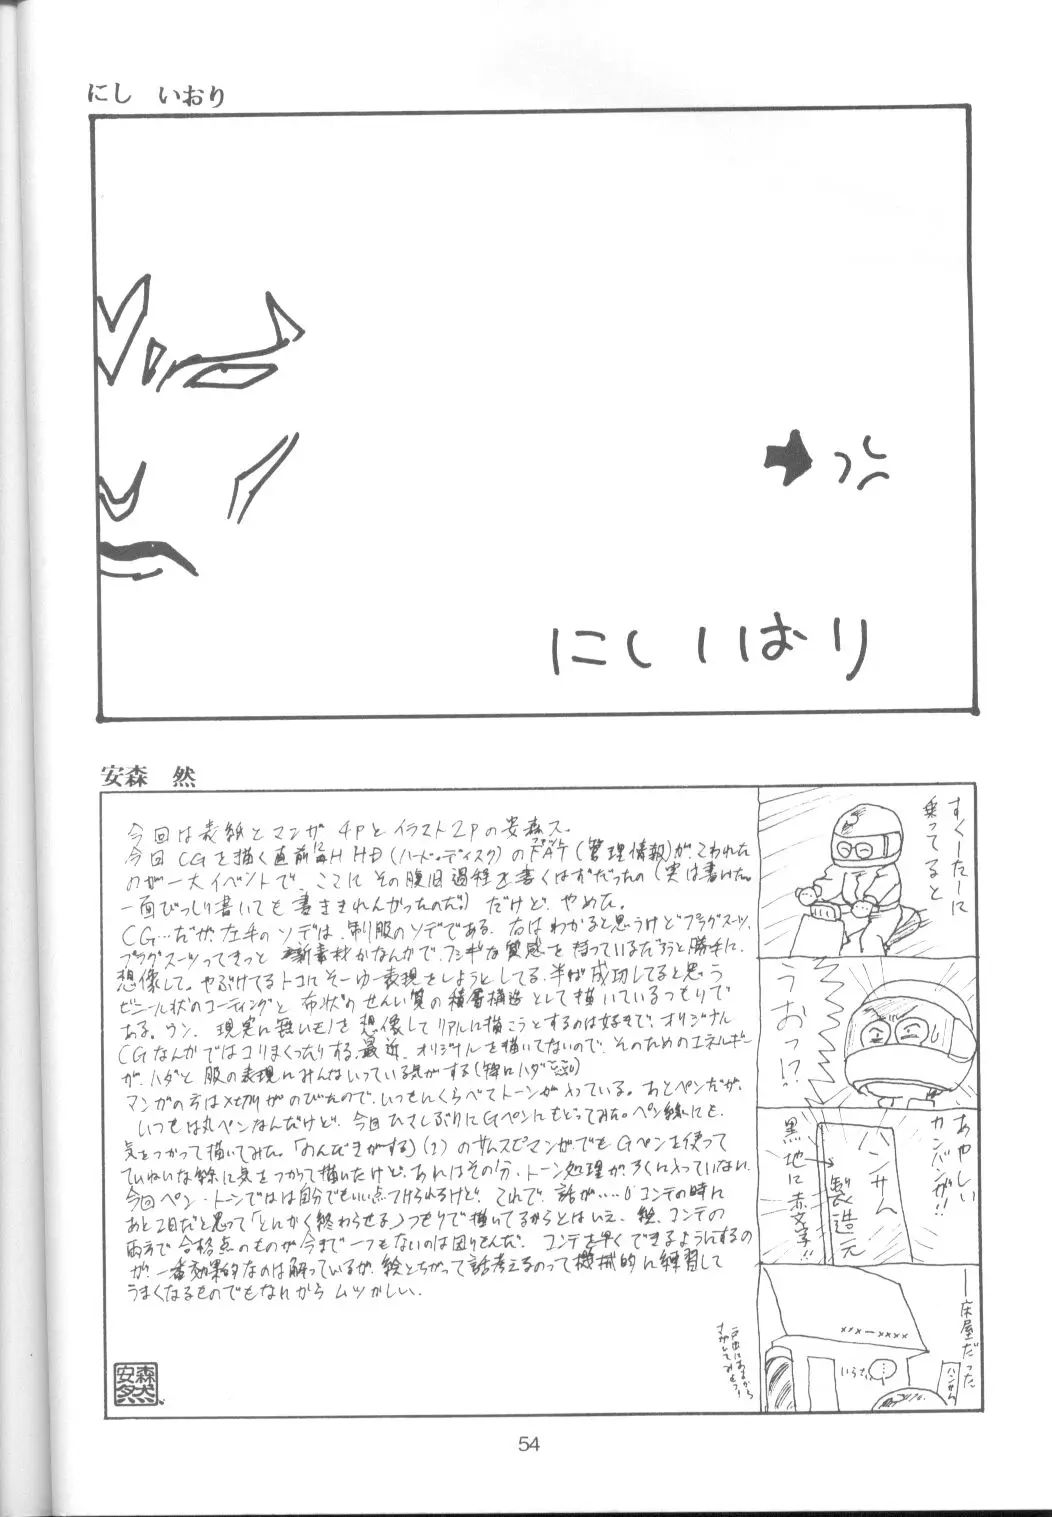 にし いおり
にしいおり
安森 然
今回は表紙とマンガ4Pとイラスト2Pの安森ス。
今回CGを描く直前にH HD(ハード・ディスク)のFAT(管理情報)が、こわれた
のが一大イベントで、ここにその復旧過程を書くはずだったの(実は書けた。
一面びっしり書いても書ききれんかったのだ。)だけど、やめた。
CG…だが、左手のソデは、制服のソデである。右はわかると思うけどプラグスーツ。
プラグスーツってきっと新素材かなんかで、フシギな質感を持っているだろうと勝手に
想像して。やぶけてるトコにそーゆー表現をしようとしてる。半ば成功してると思う
ビニール状のコーティングと布状のせんい質の積層構造として描いているつもりで
ある。ウン、現実に無いモノを想像してリアルに描こうとするのは好きで、オリジナル
CGなんかではコリまくったりする。最近、オリジナルを描いてないので、そのためのエネルギー
が、ハダと服の表現にみんないっている気がする(特にハダ
マンガの方は〆切りがのびたので、いつもにくらべてトーンが入っている。あとペンだが、
いつもは丸ペンなんだけど、今回ひさしぶりにGペンにもどってみた。ペン線にも、
気をつかって描いてみた。「のんだきがする」(?)のサムスピマンガでもGペンを使って
ていねいな線に気をつかって描いたけど、あれはその分、トーン処理が、ろくに入っていない。
今回ペン・トーンでは自分でもいい点つけられるけど、これで、話が……。コンテの時に
あと2日だと思って「とにかく終わらせる」つもりで描いてるからとはいえ、絵、コンテの
両方で合格点のものが今まで一つもないのは困りもんだ。コンテを早くできるようにするの
が、一番効果的なのは解っているが、絵とちがって話考えるのって機械的に練習して
うまくなるものでもないから ムツかしい。
安森然
すくーたーに
乗ってると
うおっ!?
あやしい
カンバンが!!
ハンサム
製造元
黒地に赤文字!!
―床屋だった
×××-××××
いらさい
…
ハンサム